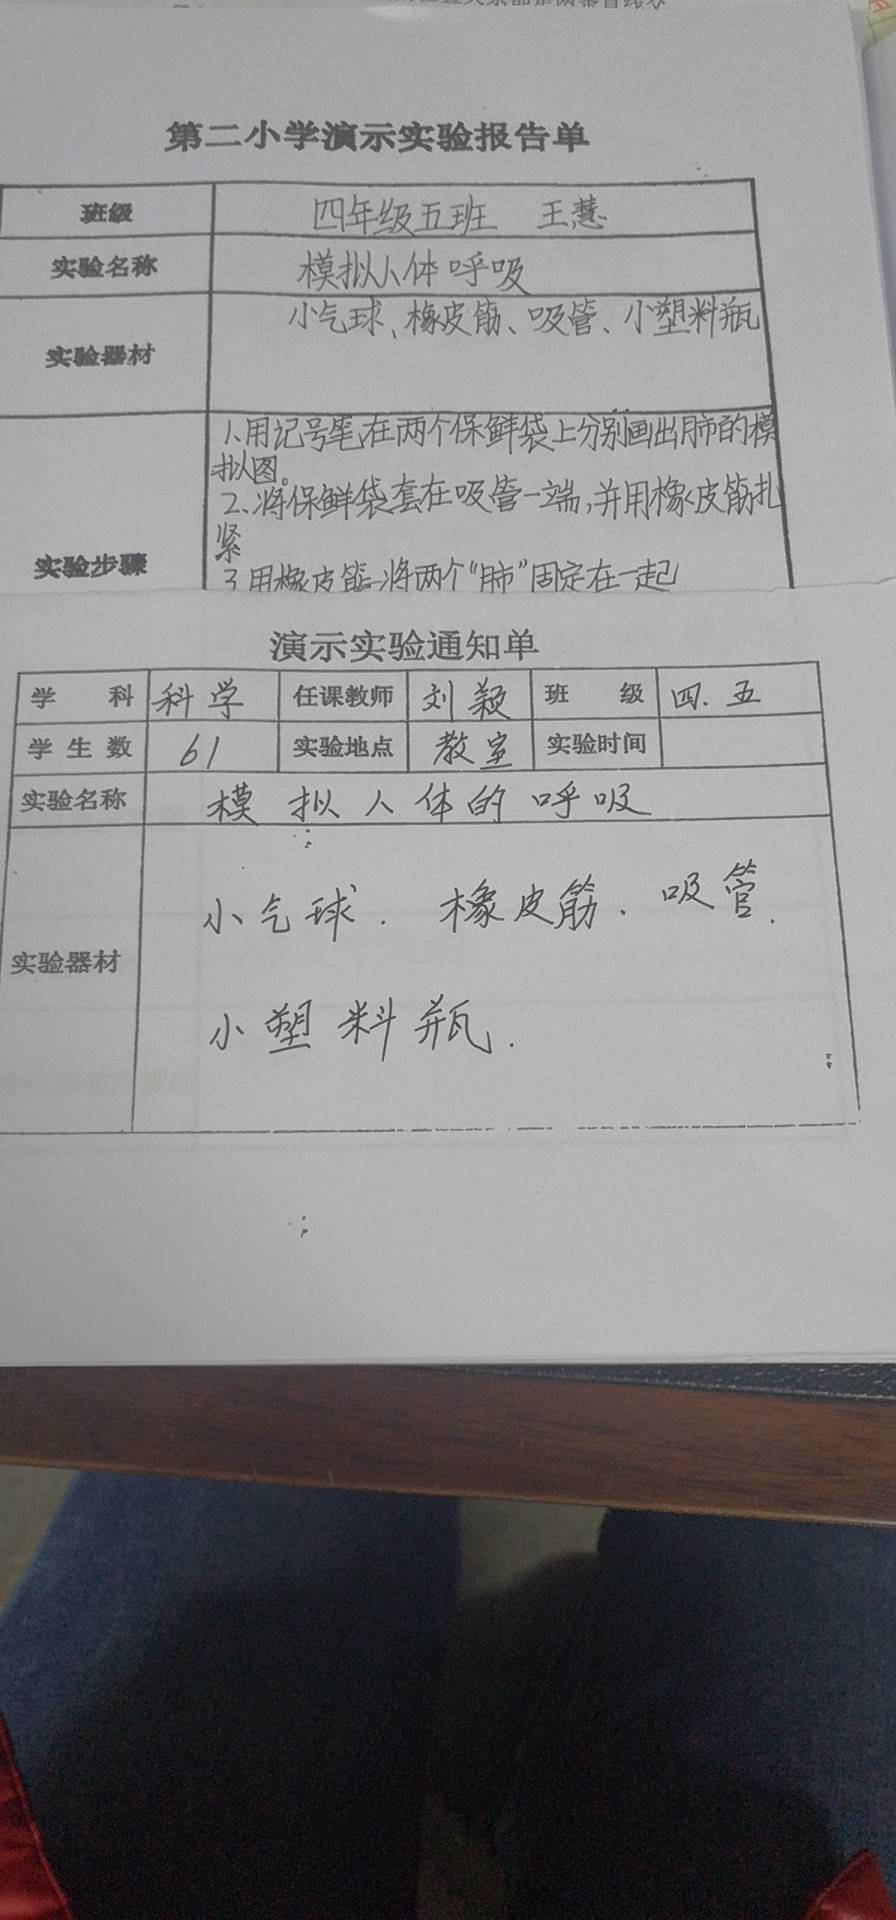 第二小学演示实验报告单
班级 四年级五班 王慧
实验名称 模拟人体呼吸
实验器材 小气球、橡皮筋、吸管、小塑料瓶
实验步骤
1、用记号笔在两个保鲜袋上分别画出肺的模
拟图。
2、将保鲜袋套在吸管一端,并用橡皮筋扎
紧
3用橡皮筋将两个“肺”固定在一起
演示实验通知单
学 科 科学 任课教师 刘颖 班 级 四.五
学生数 61 实验地点 教室 实验时间
实验名称 模拟人体的呼吸
实验器材 小气球.橡皮筋.吸管.
小塑料瓶.